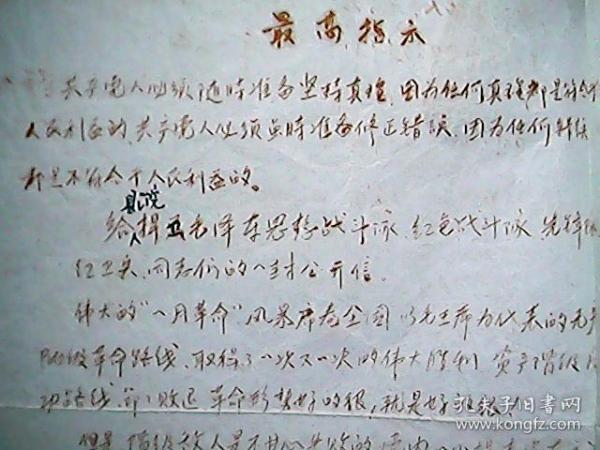 最高指示
共产党人必须随时准备坚持真理，因为任何真理都是符合于
人民利益的，共产党人必须随时准备修正错误，因为任何错误
都是不符合于人民利益的。
县院
给 毛泽东思想战斗队、红色战斗队、先锋
红卫兵，同志们的一封公开信。
伟大的“一月革命”风暴席卷全国 以毛主席为代表的无产
阶级革命路线，取得了一次又一次的伟大胜利 资产阶级反
动路线，节节败退 革命形势好的很，就是好的很！
但是 阶级敌人是不甘心失败的
孔夫子旧书网
www.kongfz.com